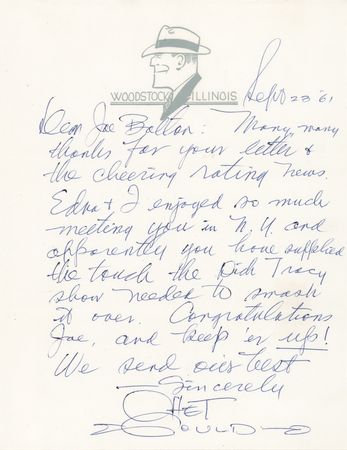 WOODSTOCK ILLINOIS
Sept 23 '61
Dear Joe Bolton: Many, many
thanks for your letter &
the cheering rating news.
Edna & I enjoyed so much
meeting you in N.Y. and
apparently you have supplied
the touch the Dick Tracy
show needed to smash
it over. Congratulations
Joe, and keep 'er up!
We send our best
Sincerely
CHET
GOULD